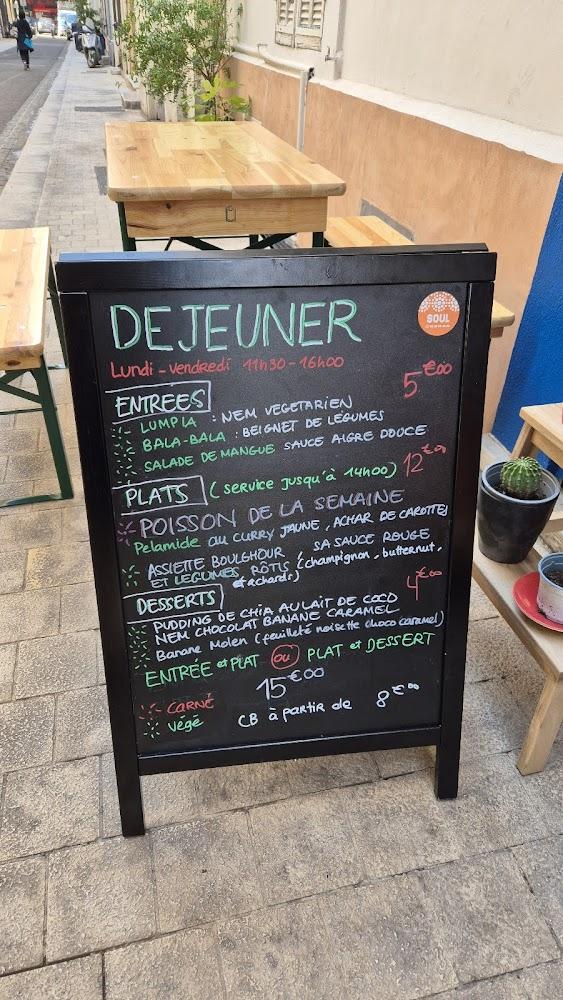 DEJEUNER
SOUL
Lundi - vendredi 11h30 - 16h00
ENTREES 5€00
LUMPIA : NEM VEGETARIEN
BALA-BALA : BEIGNET DE LÉGUMES
SALADE DE MANGUE SAUCE AIGRE DOUCE
PLATS (service jusqu'à 14h00) 12€00
POISSON DE LA SEMAINE
Pelamide au CURRY JAUNE, ACHAR DE CAROTTES
ASSIETTE BOULGHOUR, SA SAUCE ROUGE
ET LEGUMES RÔTIS (champignon, butternut,
échards)
DESSERTS 4€00
PUDDING DE CHIA AU LAIT DE COCO
NEM CHOCOLAT BANANE CARAMEL
Banane Molen (feuilleté noisette choco caramel)
ENTRÉE et PLAT ou PLAT et DESSERT
15€00
CARNÉ
végé
CB à partir de 8€00